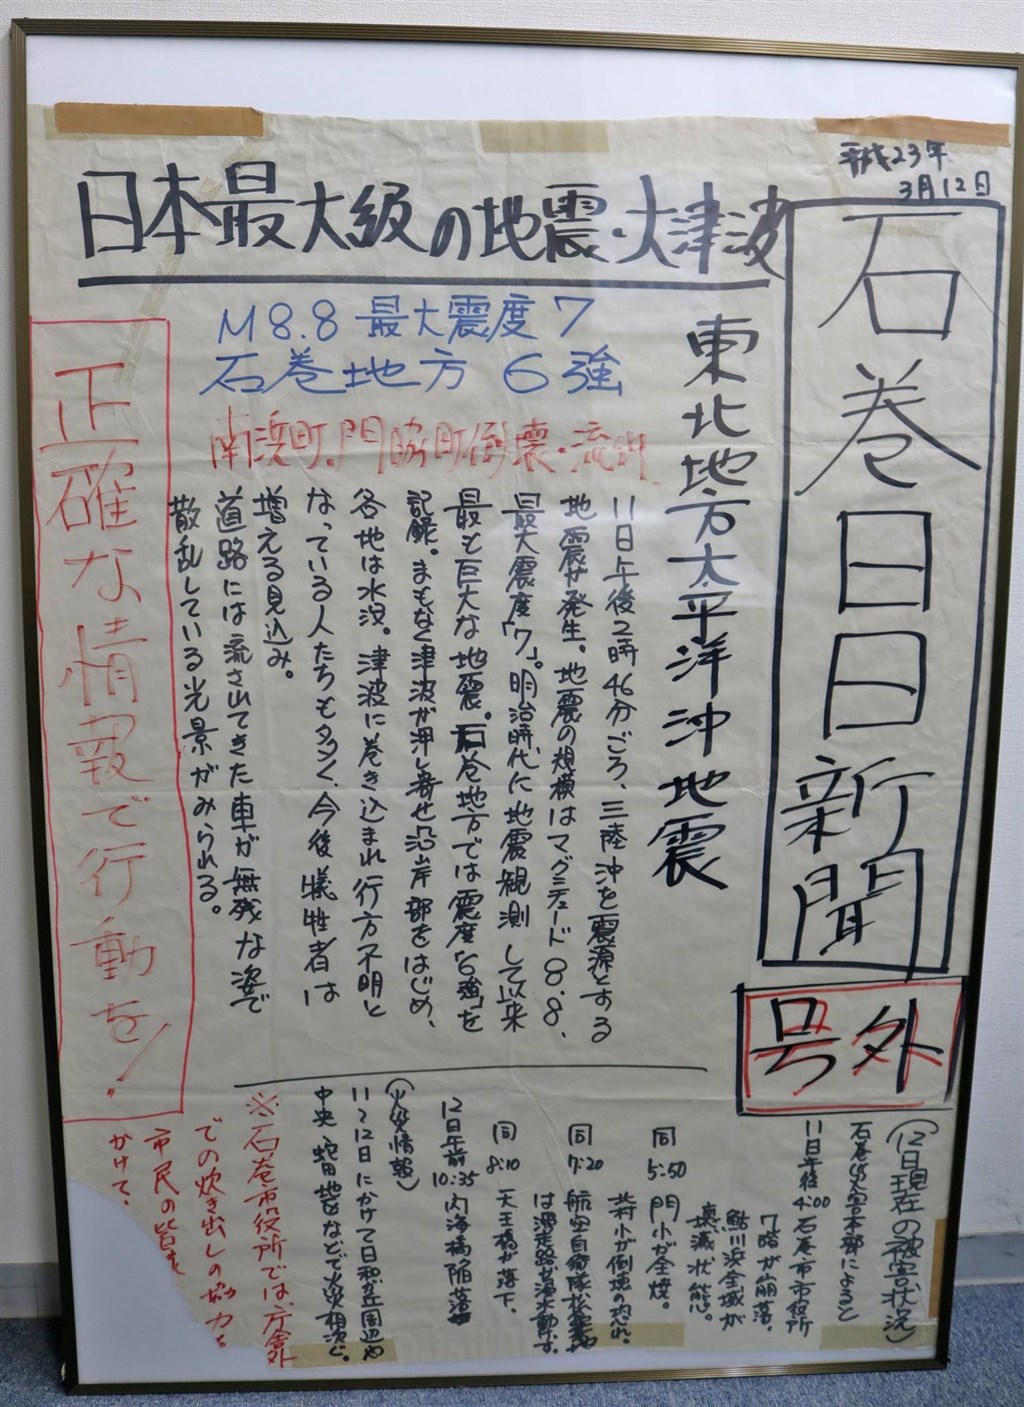 平成23年
3月12日
石巻日日新聞
号外
日本最大級の地震・大津波
東北地方太平洋沖地震
M8.8 最大震度7
石巻地方 6強
南浜町、門脇町倒壊・流出
11日午後2時46分ごろ、三陸沖を震源とする
地震が発生。地震の規模はマグニチュード8.8、
最大震度「7」。明治時代に地震観測して以来
最も巨大な地震。石巻地方では震度「6強」を
記録。まもなく津波が押し寄せ沿岸部をはじめ、
各地は水没。津波に巻き込まれ行方不明と
なっている人たちも多く、今後犠牲者は
増える見込み。
道路には流されてきた車が無残な姿で
散乱している光景がみられる。
正確な情報で行動を!
(12日現在の被害状況)
石巻災害本部によると
11日午後4:00 石巻市市役所
7階が崩落。
鮎川浜全域が
壊滅状態。
同 5:50 門小が全焼。
小が倒壊の恐れ。
同 7:20 航空自衛隊松島基地
は滑走路が浸水
同 8:10 天王橋が落下。
12日午前10:35 内海橋陥落
(火災情報)
11〜12日にかけて日和が丘周辺や
中央 蛇田地区などで火災相次ぐ。
※石巻市役所では、庁舎外
での炊き出しの協力を
市民の皆さ
かけて、